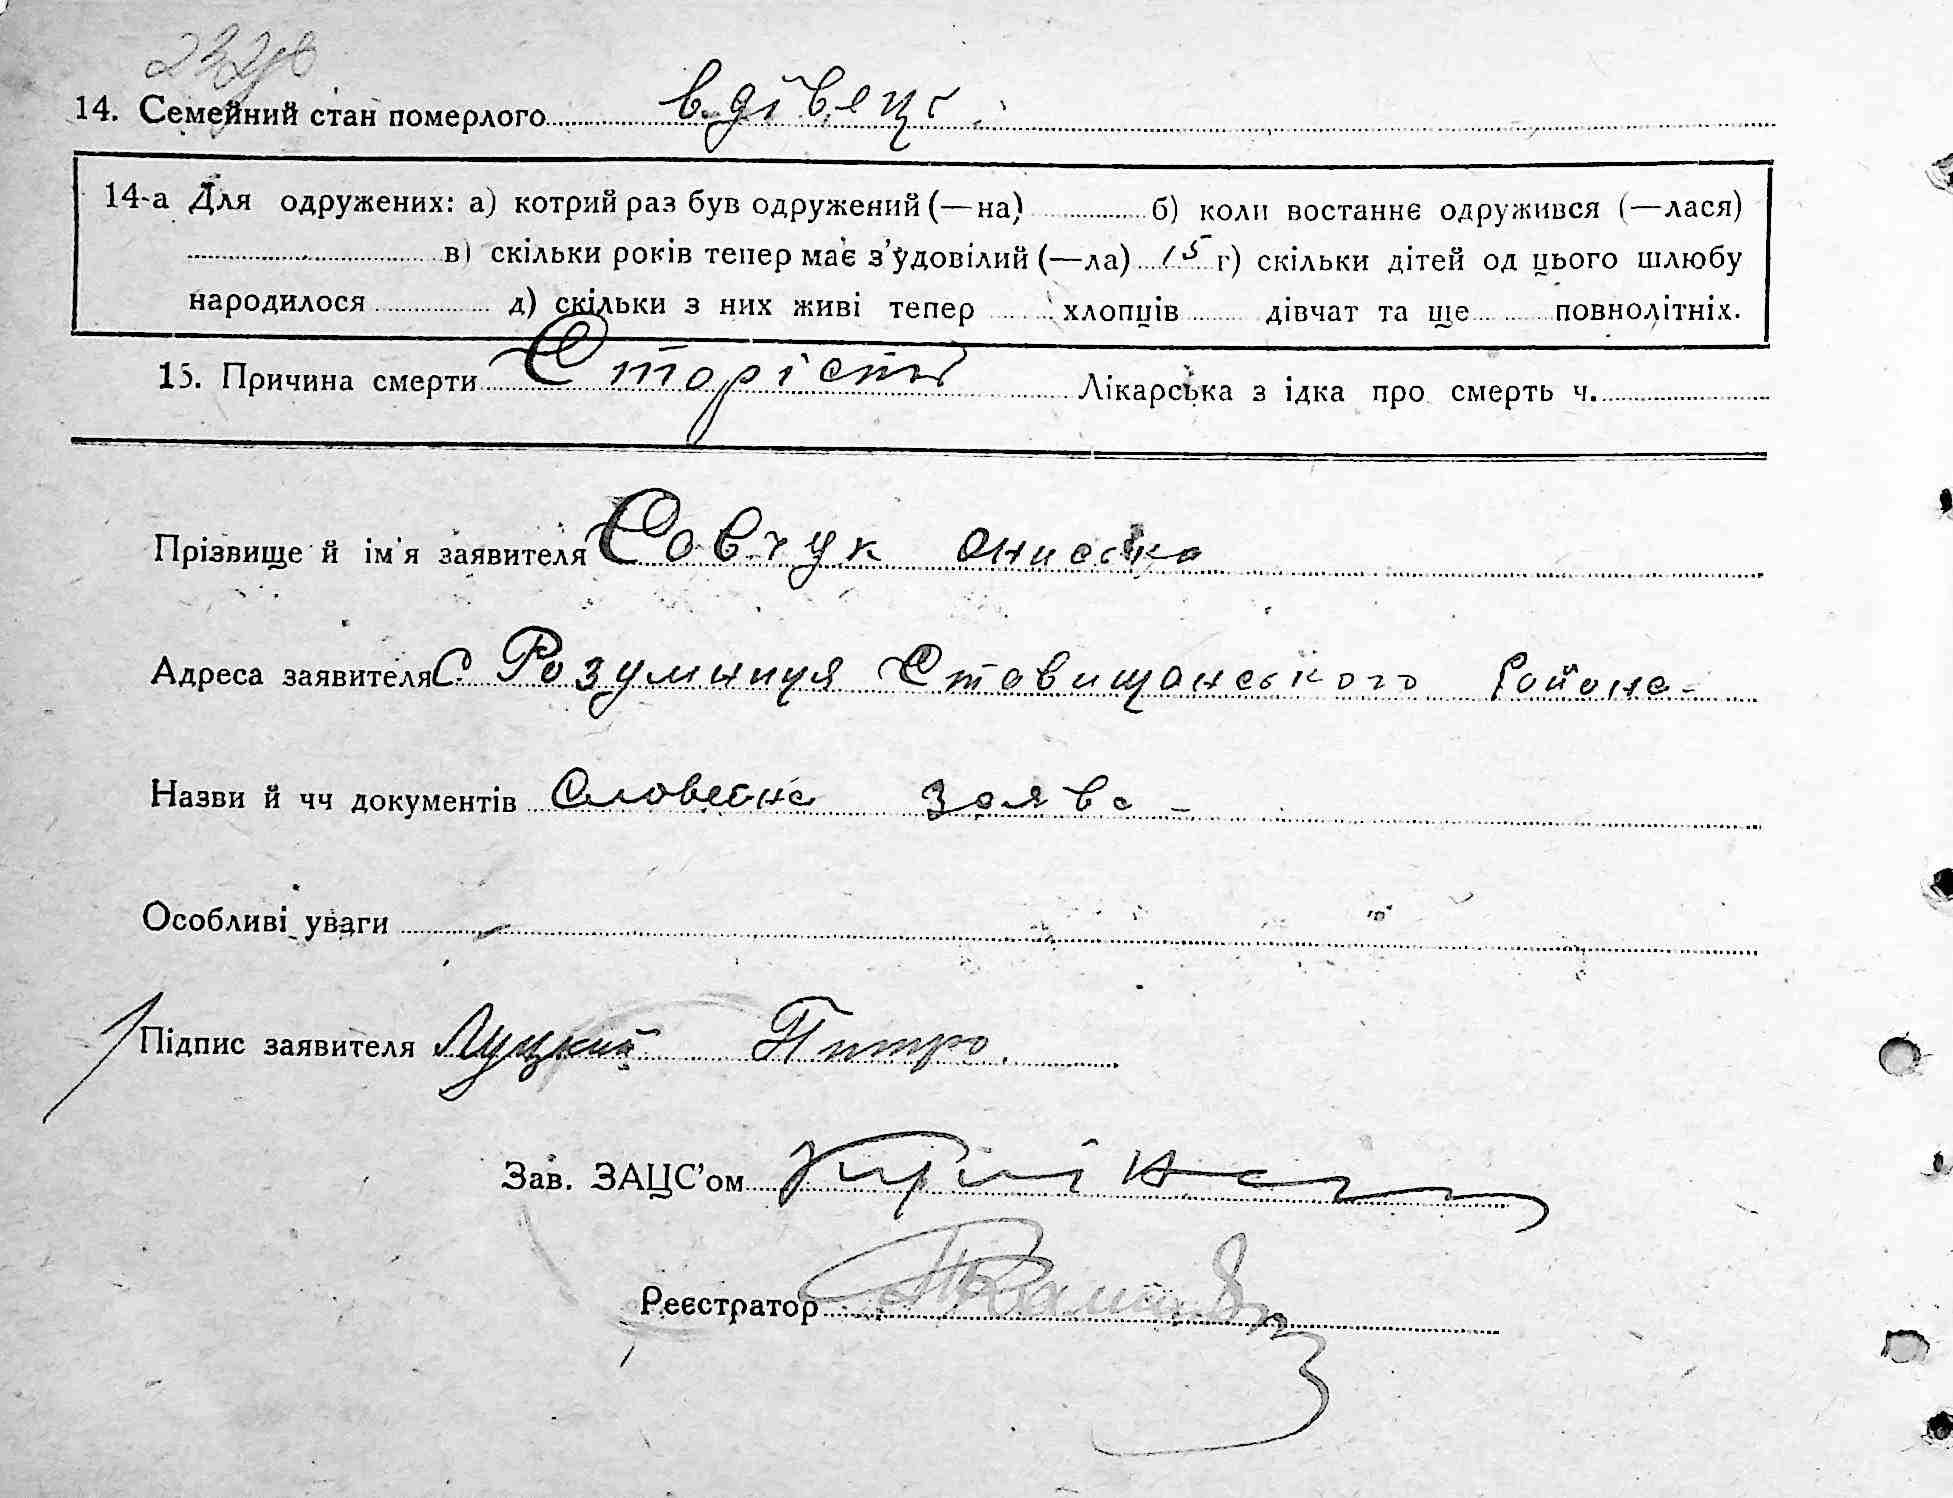 232
14. Семейний стан померлого вдівець.
14-а Для одружених: а) котрий раз був одружений (—на) б) коли востаннє одружився (—лася)
в) скільки років тепер має з'удовілий (—ла) 15 г) скільки дітей од цього шлюбу
народилося д) скільки з них живі тепер хлопців дівчат та ще повнолітніх.
15. Причина смерти Старість Лікарська з ідка про смерть ч.
Прізвище й ім'я заявителя Савчук Ониська
Адреса заявителя С. Розумниця Ставищанського Района-
Назви й чч документів Словесна заява -
Особливі уваги -
Підпис заявителя Луцкий Питро.
Зав. ЗАЦС'ом
Реєстратор